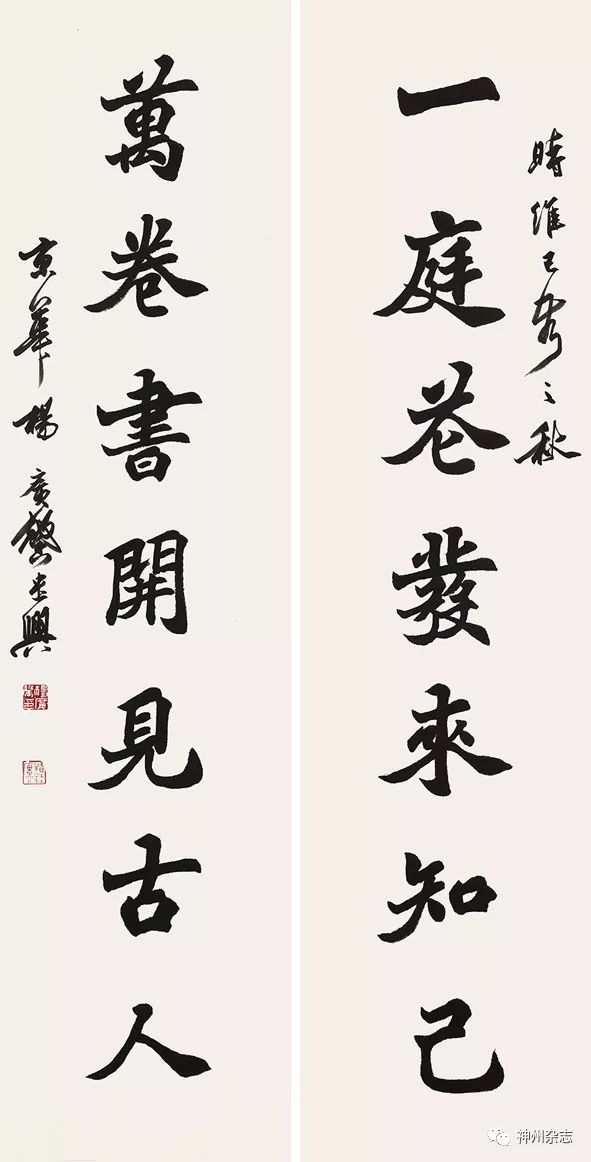 時維己亥之秋
一庭花發來知己
萬卷書開見古人
京華楊廣馨興
神州杂志